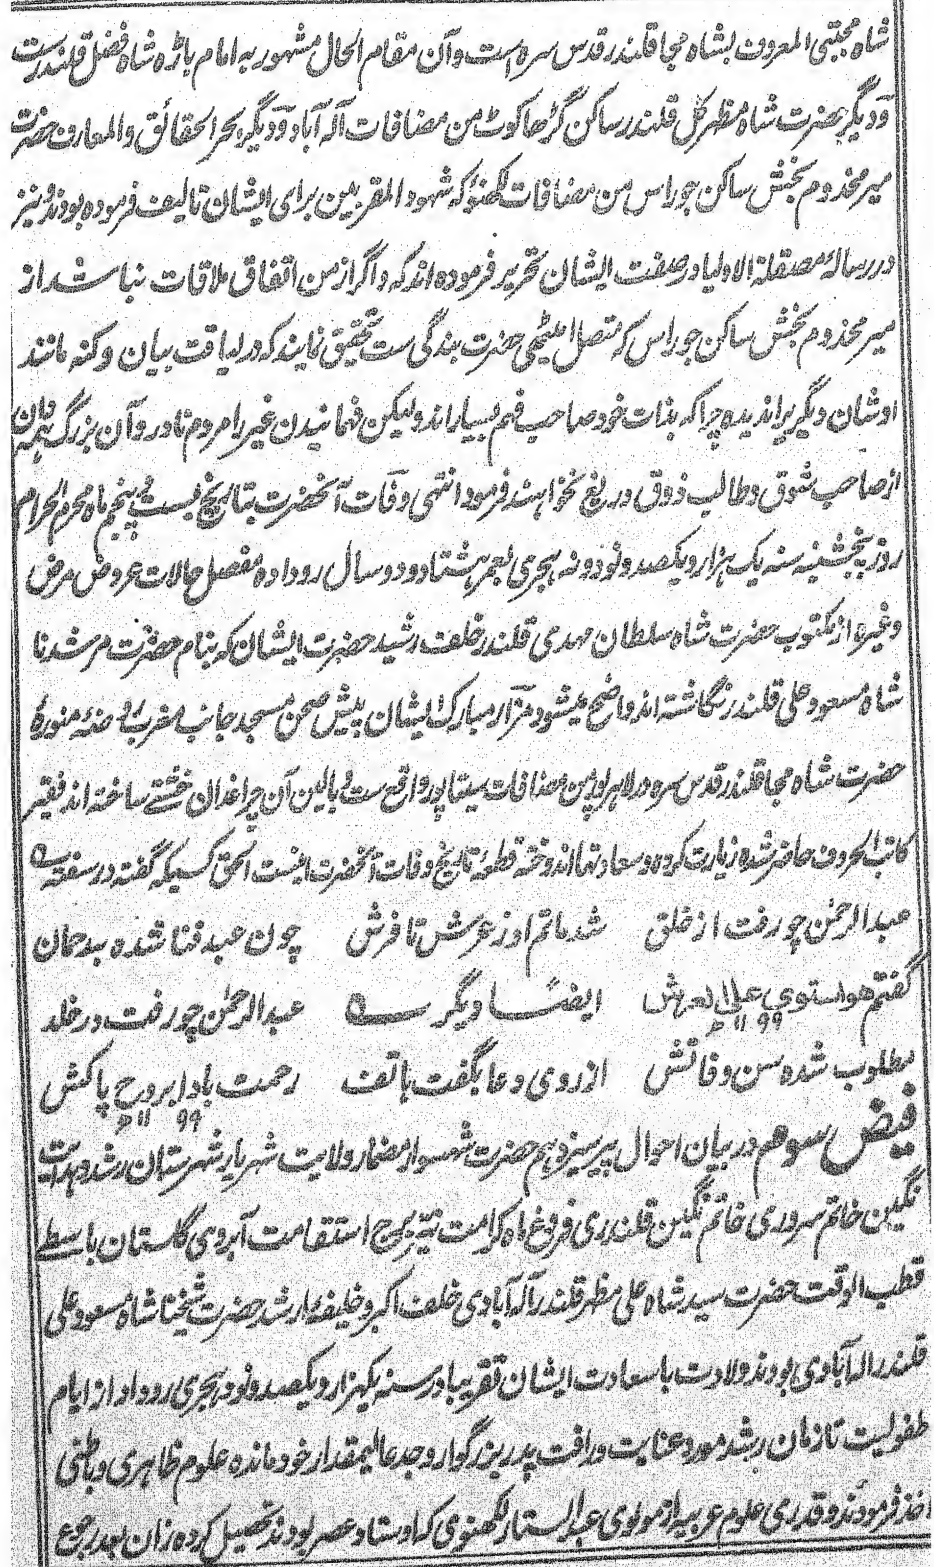 شاه مجتبی المعروف بشاه مجا قلندر قدس سره است و آن مقام الحال مشهور به امام باڑه شاه فضل قلندرست
و دیگر حضرت شاه مظهر کل قلندر ساکن گڑھا کوٹ من مضافات اله آباد و دیگر بحر الحقائق والمعارف حضرت
میر مخدوم بخش ساکن جوراس من مضافات لکھنؤ که شهود المقربین برای ایشان تالیف فرموده بودند و نیز
در رسالهٔ مصقلة الاولیا در صفت ایشان تحریر فرموده اند که و اگر از من اتفاق ملاقات نباشد از
میر مخدوم بخش ساکن جوراس که متصل امیٹھی حضرت بندگی ست تحقیق نمایند که در لیاقت بیان و کنه مانند
اوشان دیگر یرا ندیده چرا که بذات خود صاحب فهم بسیار اند ولیکن فهمانیدن غیر را مردم نادر و آن بزرگ همه دان
از صاحب شوق و طالب ذوق دریغ نخواهند فرمود انتهی وفات آنحضرت بتاریخ بست و پنجم ماه محرم الحرام
روز پنجشنبه سنه یک هزار و یکصد و نود و نه هجری بعمر هشتاد و دو سال رو داده مفصل حالات عروض مرض
و غیره از مکتوب حضرت شاه سلطان مهدی قلندر خلف رشید حضرت ایشان که بنام حضرت مرشدنا
شاه مسعود علی قلندر نگاشته اند واضح میشود مزار مبارک ایشان پیش صحن مسجد جانب مغرب روضهٔ منورهٔ
حضرت شاه مجا قلندر قدس سره در لاهرپور من مضافات سیتاپور واقع ست و بالین آن چراغدان خشتے ساخته اند فقیر
کاتب الحروف حاضر شده زیارت کرده و سعادتها اندوخته قطعهٔ تاریخ وفات آنحضرت اینست الحق کسیکه گفته در سفته
عبدالرحمٰن چو رفت از خلق شد ماتم او ز عرش تا فرش چون عبد فنا شده برحمان
گفتم هو استوی علی العرش ۱۱۹۹ھ ایضًا و دیگر عبدالرحمٰن چو رفت در خلد
مطلوب شده سن وفاتش از روی دعا بگفت هاتف رحمت بادا بروح پاکش ۱۱۹۹ھ
فیض سوم در بیان احوال پیر سیزدهم حضرت شهسوار مضمار ولایت شهریار شهرستان رشد و هدایت
نگین خاتم سروری خاتم نگین قلندری فروغ ماه کرامت نیّر برج استقامت آبروی گلستان باسطے
قطب الوقت حضرت سید شاه علی مظهر قلندر اله آبادی خلف اکبر و خلیفهٔ ارشد حضرت شیخنا شاه مسعود علی
قلندر اله آبادی بودند ولادت باسعادت ایشان تقریبا در سنه یکهزار و یکصد و نود هجری رو داد از ایام
طفولیت تا زمان رشد مورد عنایت و رافت پدر بزرگوار و جد عالیمقدار خود مانده علوم ظاهری و باطنی
اخذ فرمودند و قدری علوم عربیه از مولوی عبدالستار لکهنوی که اوستاد عصر بودند تحصیل کرده زان بعد رجوع